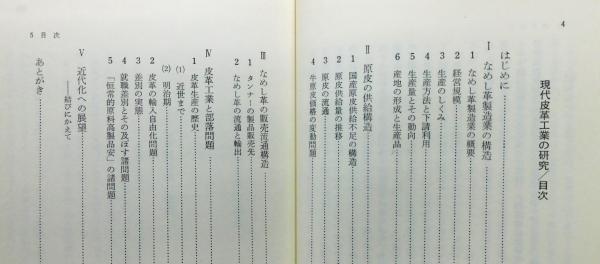 4
現代皮革工業の研究/目次
はじめに
Ⅰ なめし革製造業の構造
1 なめし革製造業の概要
2 経営規模
3 生産のしくみ
4 生産方法と下請利用
5 生産量とその動向
6 産地の形成と生産品
Ⅱ 原皮の供給構造
1 国産原皮供給不足の構造
2 原皮供給量の推移
3 原皮の流通
4 牛原皮価格の変動問題
5 目次
Ⅲ なめし革の販売流通構造
1 タンナーの製品販売先
2 なめし革の流通と輸出
Ⅳ 皮革工業と部落問題
1 皮革生産の歴史
(1) 近世まで
(2) 明治期
2 皮革の輸入自由化問題
3 差別の実態
4 就職差別とその及ぼす諸問題
5 「恒常的原料高製品安」の諸問題
Ⅴ 近代化への展望
——結びにかえて
あとがき